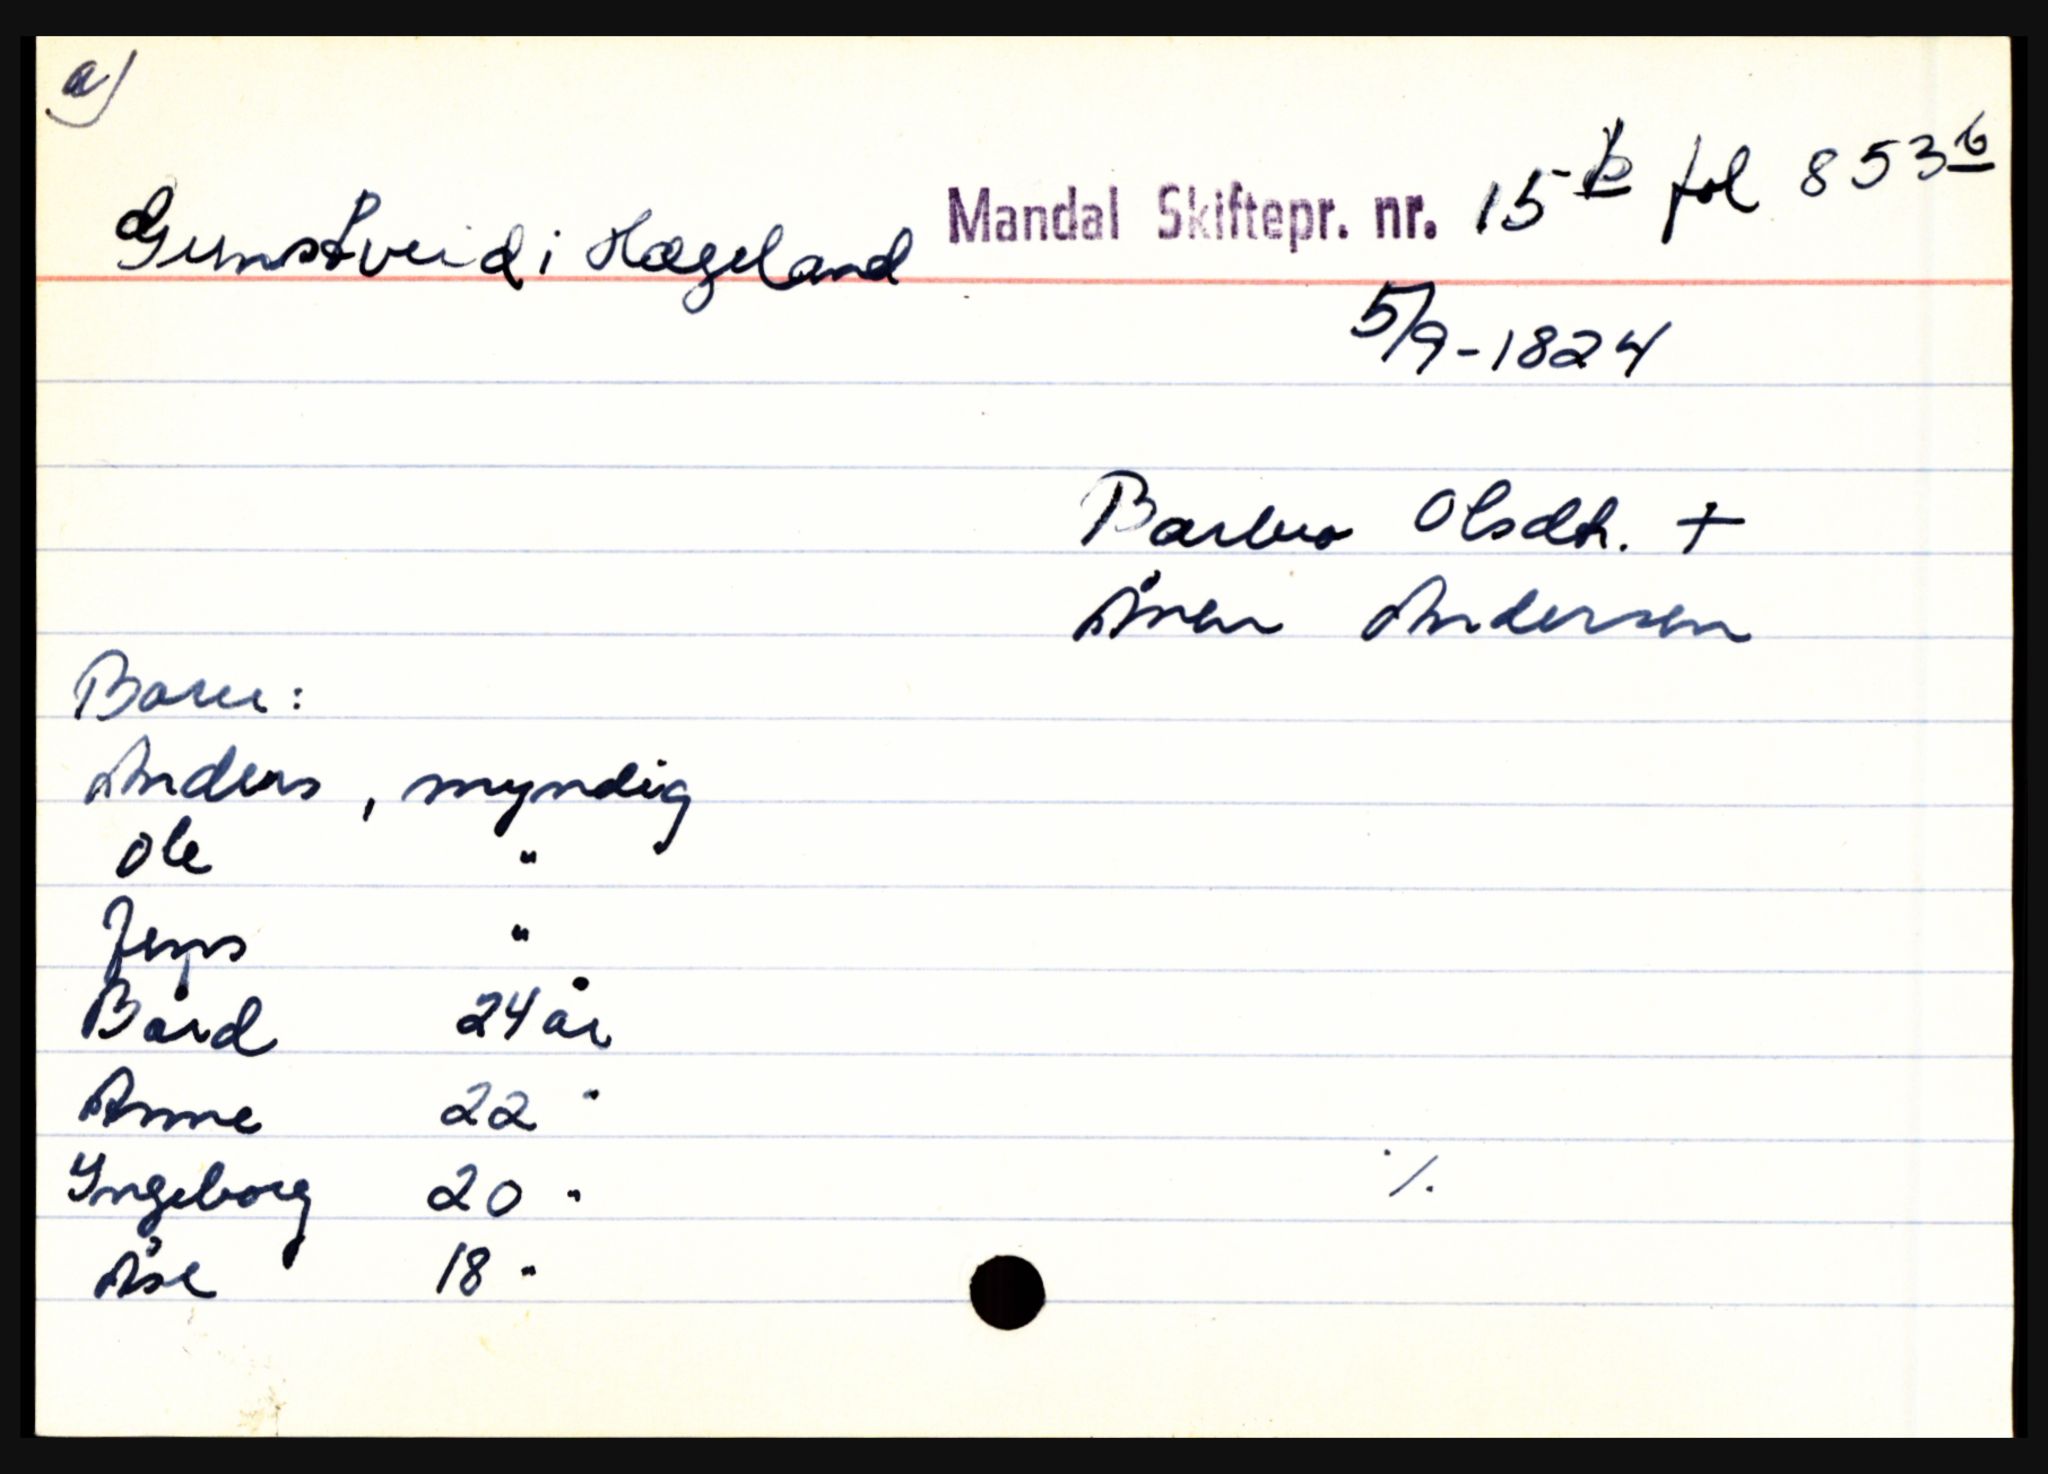 a)
Gunstveid i Hægeland Mandal Skiftepr. nr. 15 b fol 853 b
5/9-1824
Barbro Olsdtr. +
Ånen Andersen
Barn:
Anders, myndig
Ole "
Jens "
Bård 24 år
Anne 22 "
Yngeborg 20 " ./.
Åse 18 "